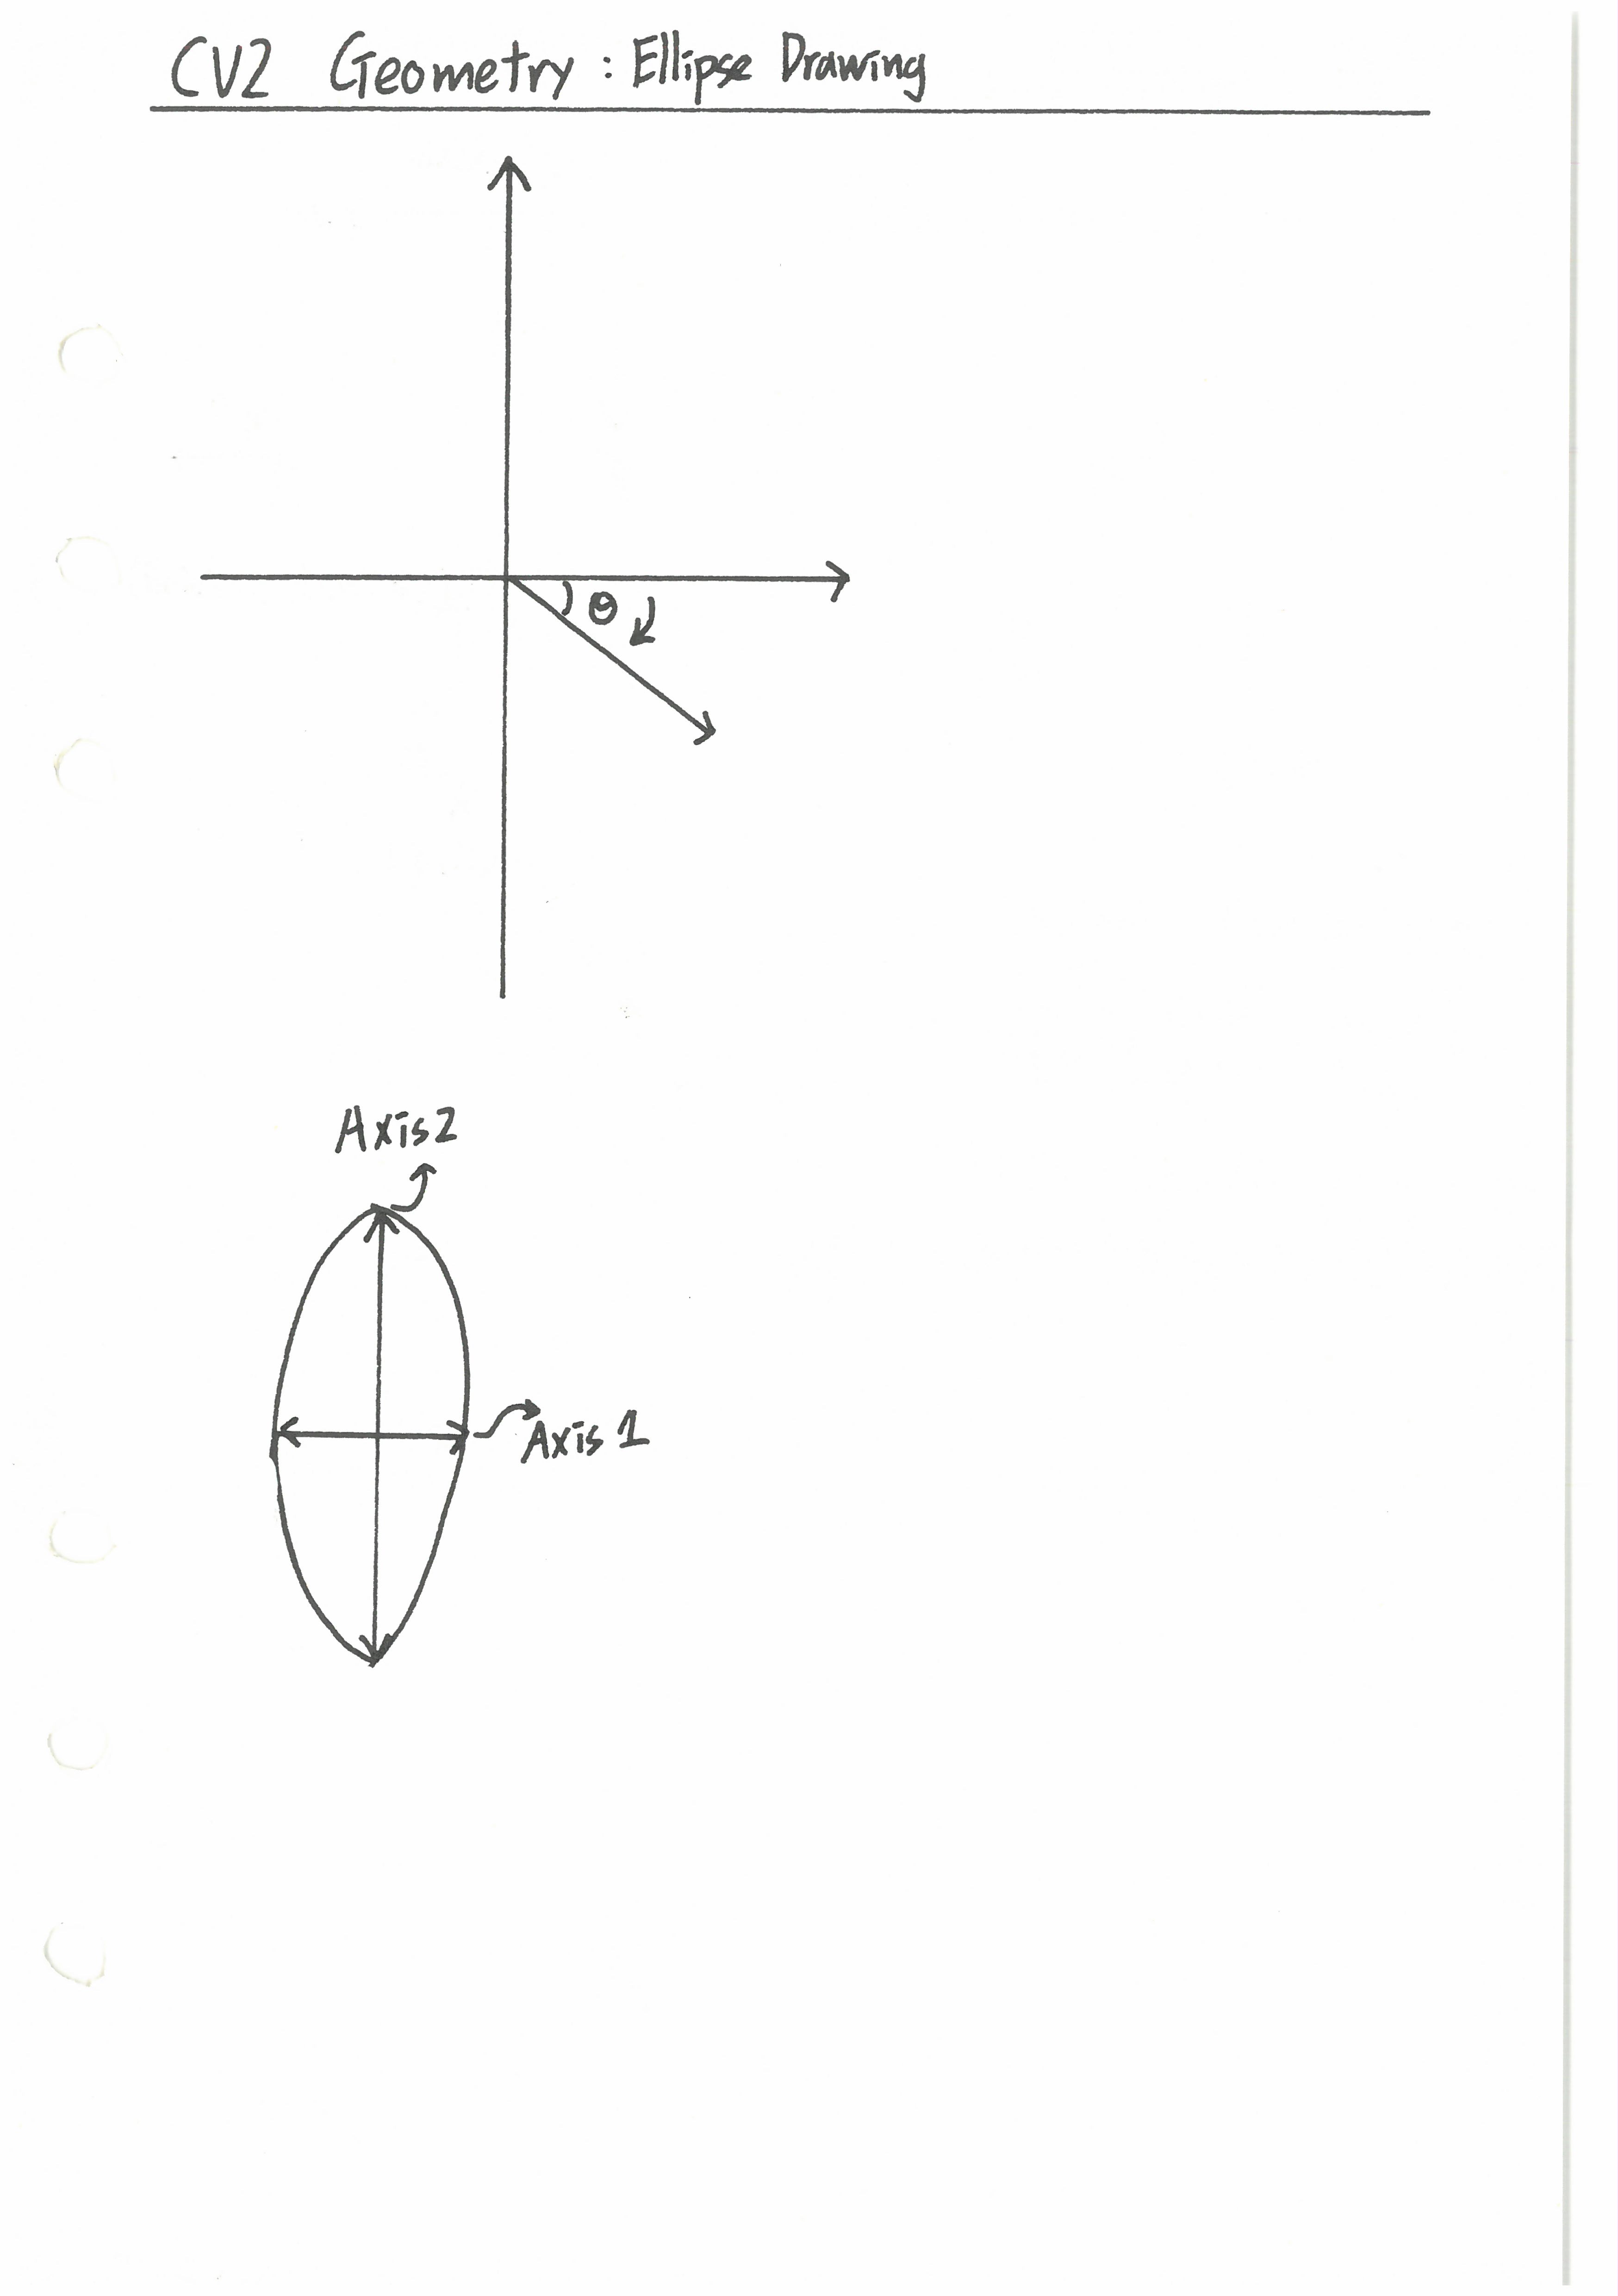 CV2 Geometry : Ellipse Drawing
θ
Axis2
Axis 1